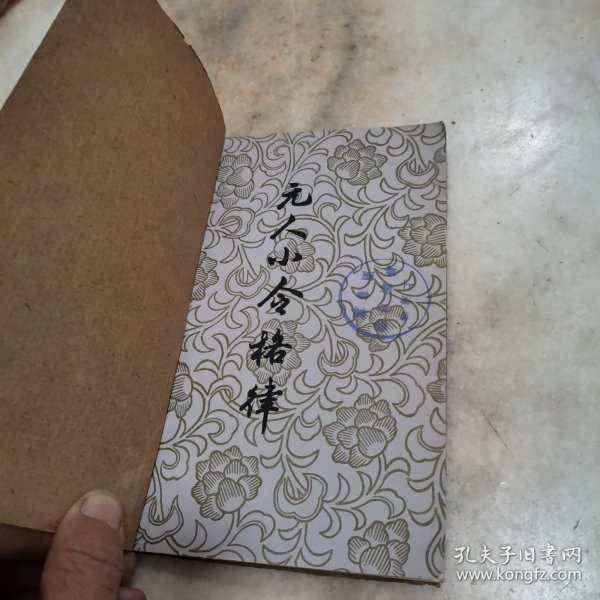 元人小令格律
孔夫子旧书网
www.kongfz.com